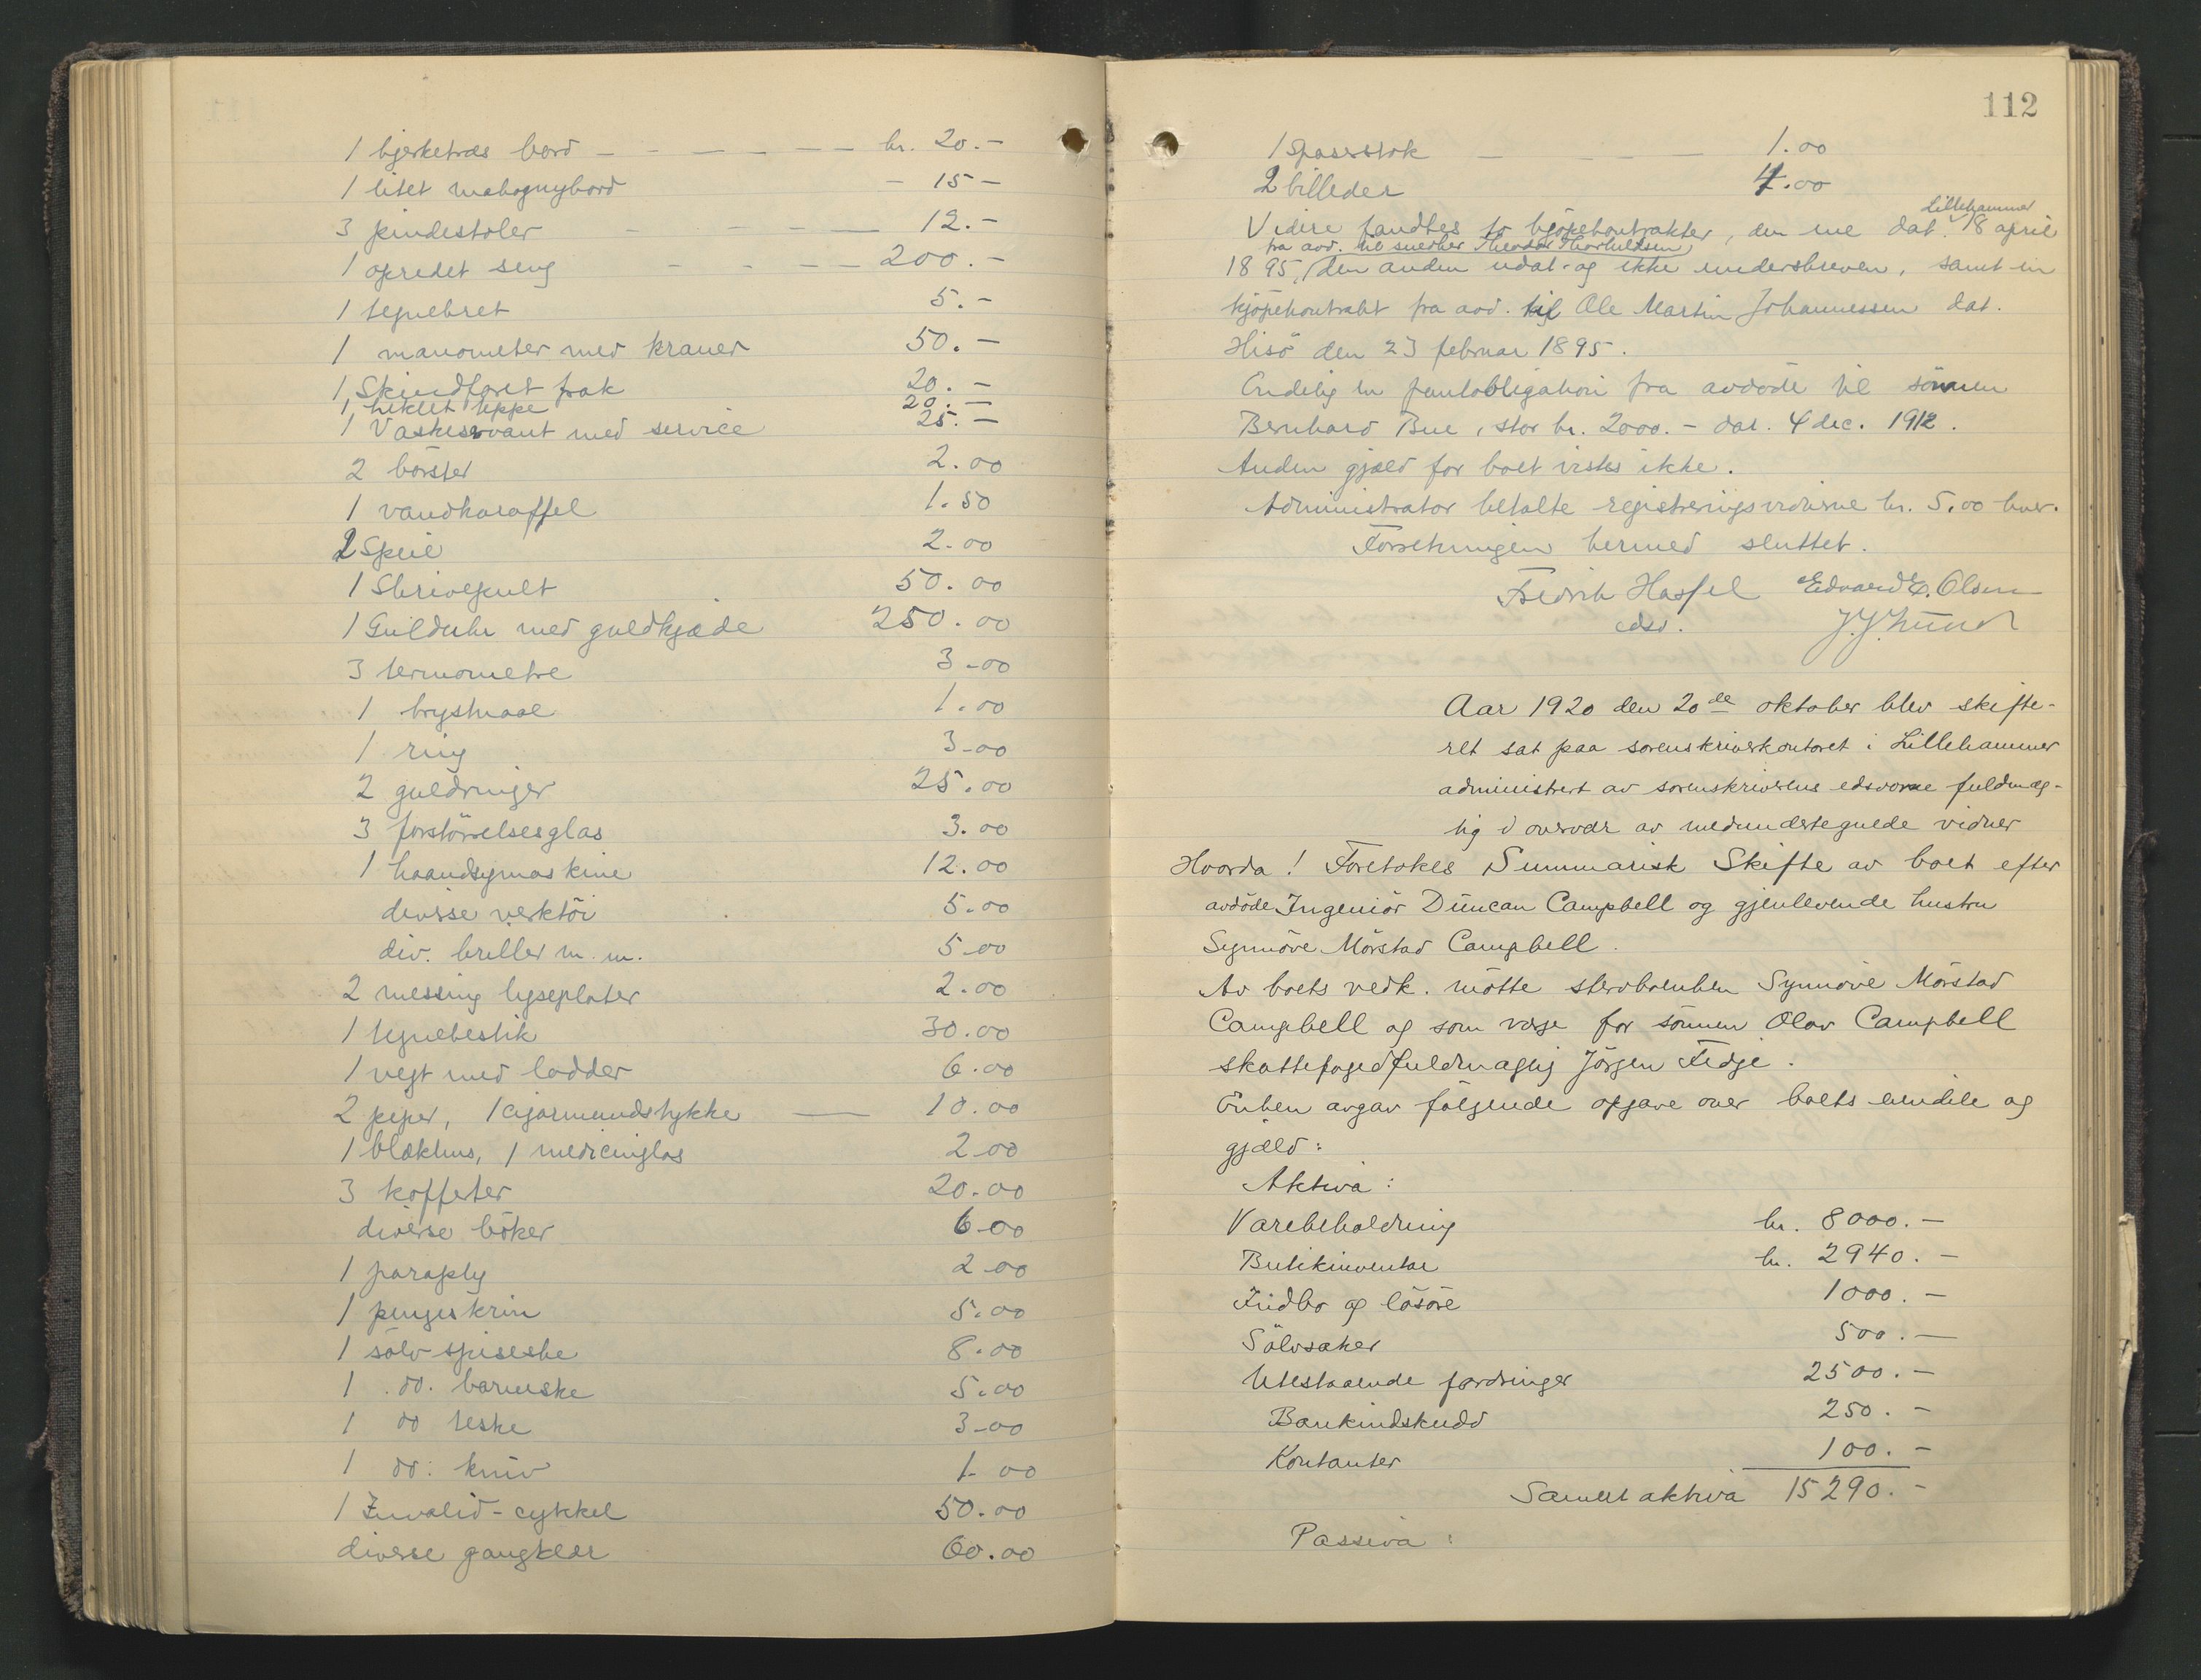 1 bjerketræs bord — — — — — — kr. 20.-
1 litet mahognybord — 15 -
3 pindestoler — — — — 12.-
1 opredet seng — — — — 200.-
1 tegnebret 5.-
1 manometer med kraner 50.-
1 Skindforet frak 20.-
1 heklet teppe 20.-
1 Vaskeservant med service 25.-
2 börster 2.00
1 vandkaraffel 1.50
2 Speil 2.00
1 Skrivepult 50.00
1 Gulduhr med guldkjæde 250.00
3 termometre 3-00
1 brystnaal 1.00
1 ring 3-00
2 guldringer 25.00
3 forstörrelsesglas 3.00
1 haandsymaskine 12.00
diverse verktöi 5.00
div. briller m.m. 5-00
2 messing lyseplater 2.00
1 tegnebestik 30.00
1 vegt med lodder 6.00
2 piper, 1 cigarmundstykke — 10.00
1 blækhus, 1 medicinglas 2-00
3 kofferter 20-00
diverse böker 6-00
1 paraply 2-00
1 pengeskrin 5.00
1 sölv spiseske 8.00
1 do. barneske 5.00
1 do teske 3-00
1 do: kniv 1-00
1 Invalid-cykkel 50.00
diverse gangklær 60.00
112
1 Spaserstok — — — — 1.00
2 billeder 4.00
Lillehammer
Videre fandtes to kjöpekontrakter, den ene dat. 18 april
fra avd. til snedker Theodor Thorkildsen
1895, den anden udat. og ikke underskreven, samt en
kjöpekontrakt fra avd. til Ole Martin Johannessen dat.
Hisö den 23 februar 1895.
Endelig en pantobligation fra avdöde til sönnen
Bernhard Bue, stor kr. 2000.- dat. 4 dec. 1912.
Anden gjæld for boet vistes ikke.
Administrator betalte registreringsvidnerne kr. 5.00 hver.
Forretningen hermed sluttet.
Fredrik Hassel Edvard E. Olsen
edsv.
Aar 1920 den 20de oktober blev skifte-
ret sat paa sorenskriverkontoret i Lillehammer
administrert av sorenskriverens edsvorne fuldmæg-
tig i overvær av medundertegnede vidner
Hvorda! Foretokes Summarisk Skifte av boet efter
avdöde Ingeniör Duncan Campbell og gjenlevende hustru
Synnöve Mörstad Campbell.
Av boets vedk. mötte stervboenken Synnöve Mörstad
Campbell og som verge for sönnen Olav Campbell
skattefogedfuldmægtig Jörgen Fedje.
Enken avgav fölgende opgave over boets eiendele og
gjæld:
Aktiva:
Varebeholdning kr. 8000.-
Butikinventar kr. 2940.-
Indbo og lösöre 1000.-
Sölvsaker 500.-
Utestaaende fordringer 2500.-
Bankindskudd 250.-
Kontanter 100.-
Samlet aktiva 15290.-
Passiva: